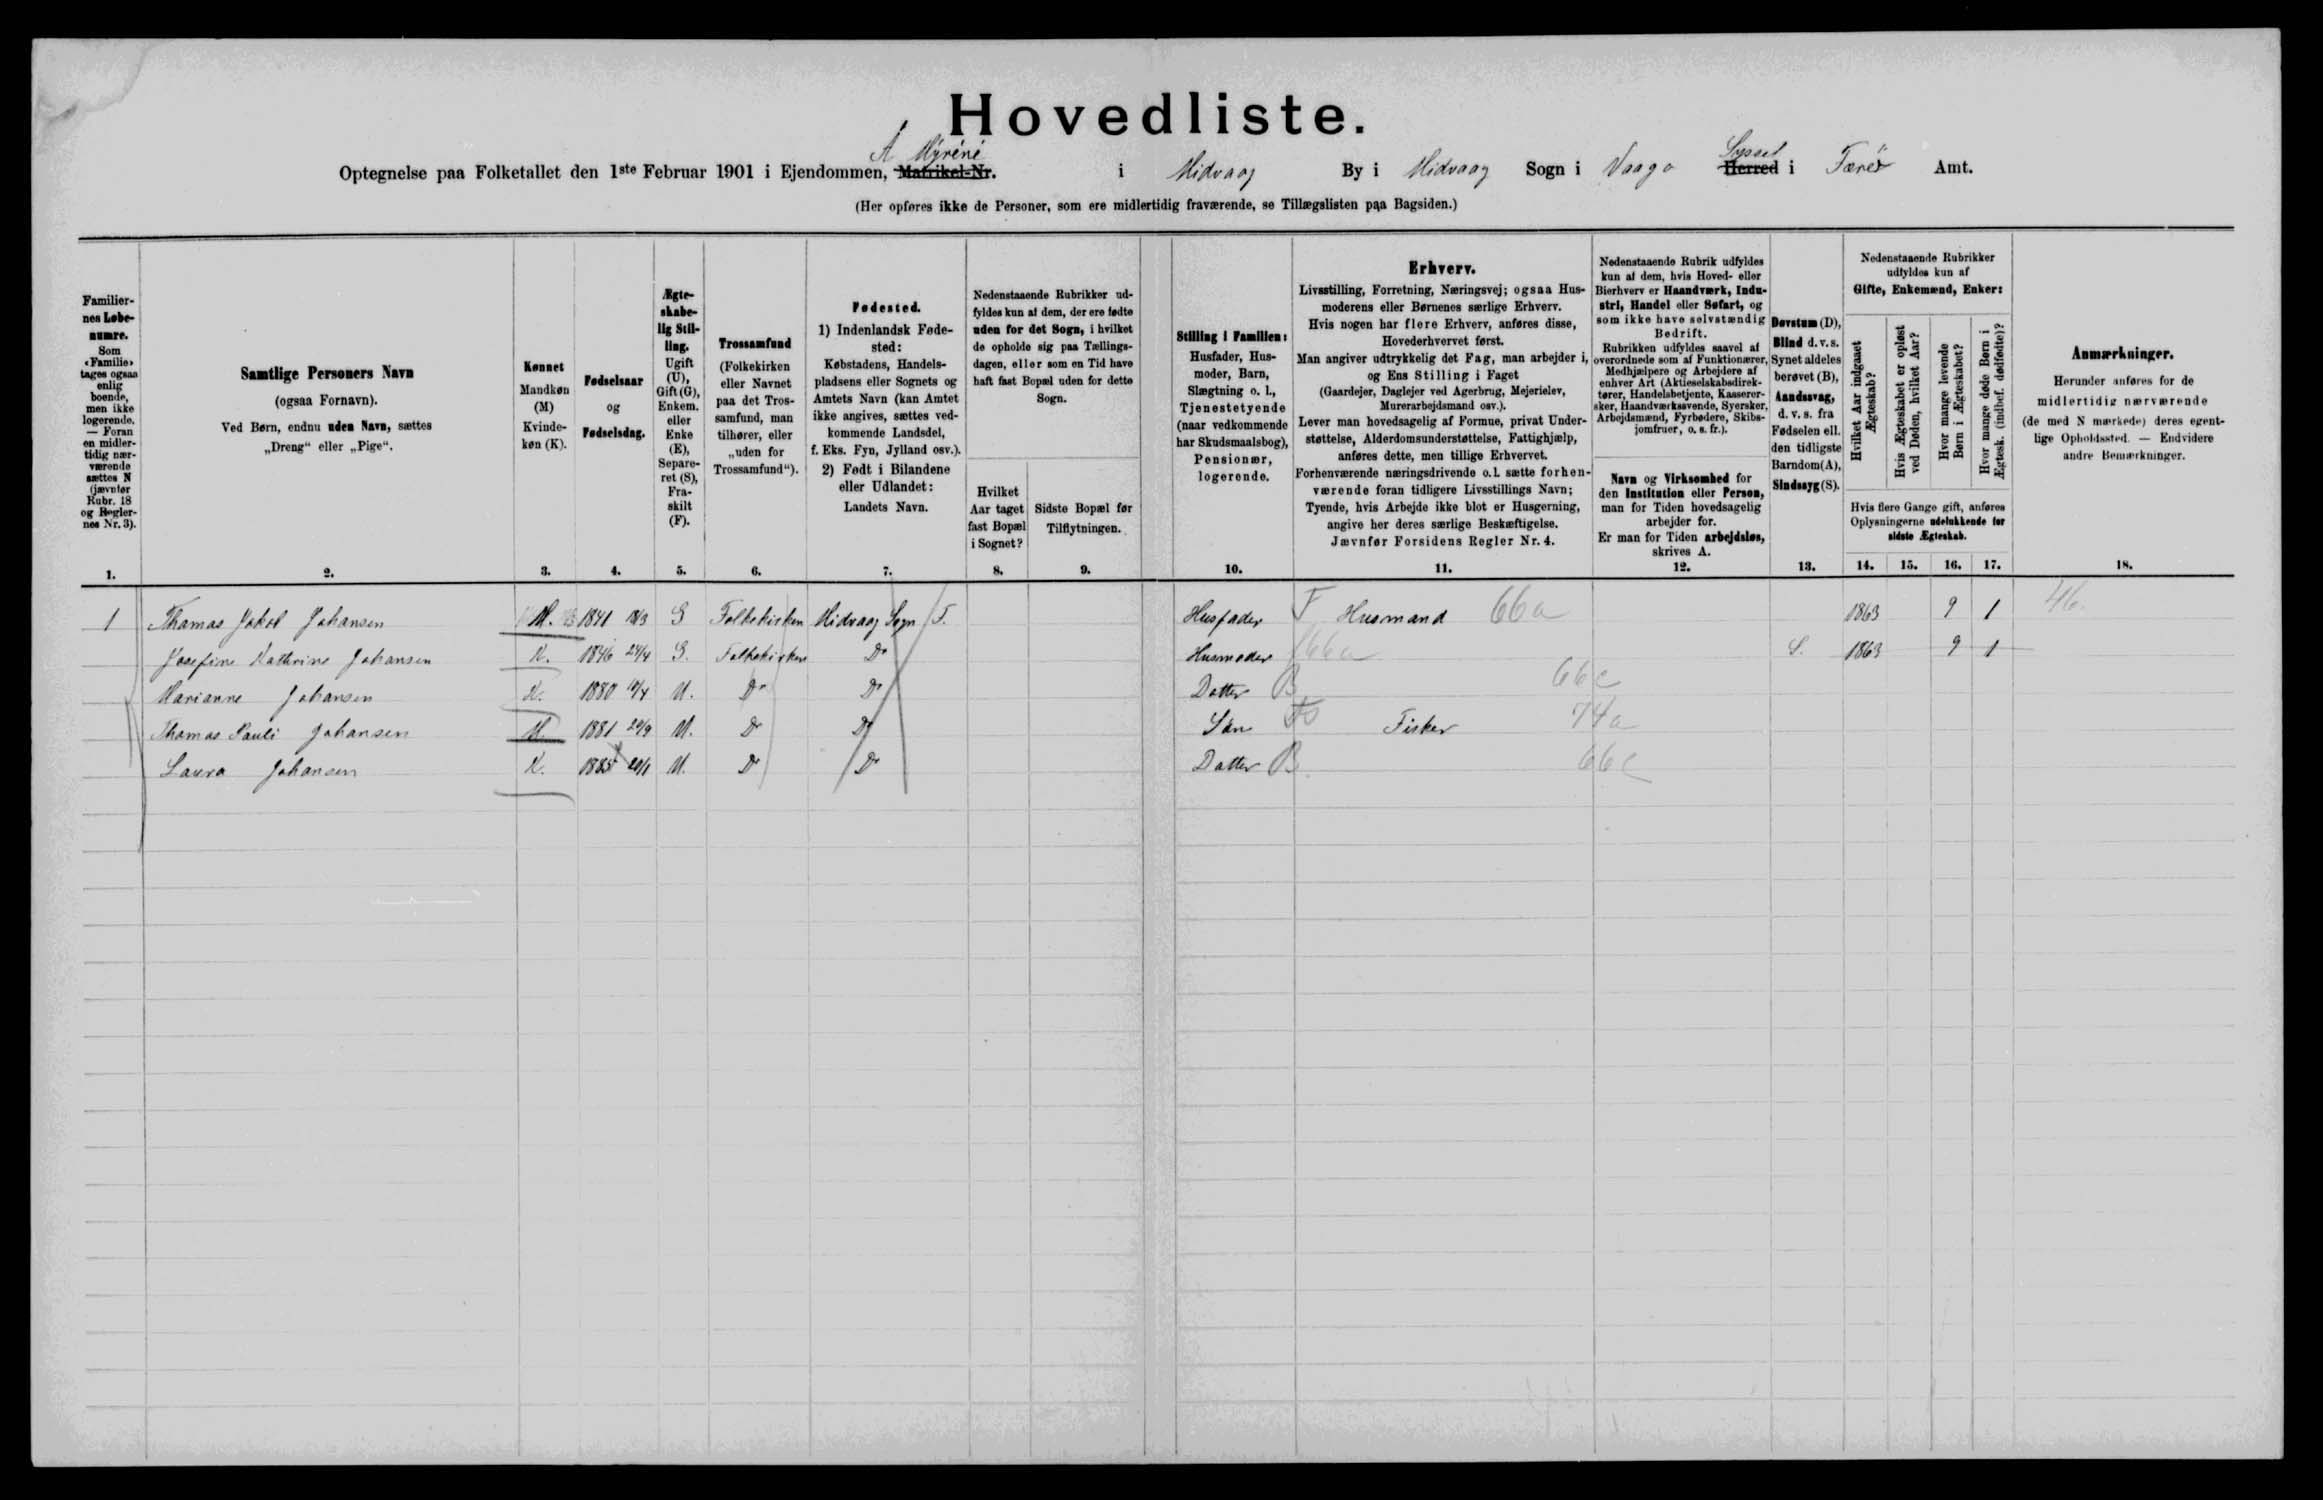 Hovedliste.
Á Mýréné
Syssel
Optegnelse paa Folketallet den 1ste Februar 1901 i Ejendommen, Matrikel-Nr. i Midvaag By i Midvaag Sogn i Vaagø Herred i Færø Amt.
(Her opføres ikke de Personer, som ere midlertidig fraværende, se Tillægslisten paa Bagsiden.)
Familier-
nes Løbe-
numre.
Som
«Familie»
tages ogsaa
enlig
boende,
men ikke
logerende.
— Foran
en midler-
tidig nær-
værende
sættes N
(jævnfør
Rubr. 18
og Regler-
nes Nr. 3).
1.
Samtlige Personers Navn
(ogsaa Fornavn).
Ved Børn, endnu uden Navn, sættes
„Dreng“ eller „Pige“.
2.
Kønnet
Mandkøn
(M)
Kvinde-
køn (K).
3.
Fødselsaar
og
Fødselsdag.
4.
Ægte-
skabe-
lig Stil-
ling.
Ugift
(U),
Gift (G),
Enkem.
eller
Enke
(E),
Separe-
ret (S),
Fra-
skilt
(F).
5.
Trossamfund
(Folkekirken
eller Navnet
paa det Tros-
samfund, man
tilhører, eller
„uden for
Trossamfund“).
6.
Fødested.
1) Indenlandsk Føde-
sted:
Købstadens, Handels-
pladsens eller Sognets og
Amtets Navn (kan Amtet
ikke angives, sættes ved-
kommende Landsdel,
f. Eks. Fyn, Jylland osv.).
2) Født i Bilandene
eller Udlandet:
Landets Navn.
7.
Nedenstaaende Rubrikker ud-
fyldes kun af dem, der ere fødte
uden for det Sogn, i hvilket
de opholde sig paa Tællings-
dagen, eller som en Tid have
haft fast Bopæl uden for dette
Sogn.
Hvilket
Aar taget
fast Bopæl
i Sognet?
8.
Sidste Bopæl før
Tilflytningen.
9.
Stilling i Familien:
Husfader, Hus-
moder, Barn,
Slægtning o. l.,
Tjenestetyende
(naar vedkommende
har Skudsmaalsbog),
Pensionær,
logerende.
10.
Erhverv.
Livsstilling, Forretning, Næringsvej; ogsaa Hus-
moderens eller Børnenes særlige Erhverv.
Hvis nogen har flere Erhverv, anføres disse,
Hovederhvervet først.
Man angiver udtrykkelig det Fag, man arbejder i,
og Ens Stilling i Faget
(Gaardejer, Daglejer ved Agerbrug, Mejerielev,
Murerarbejdsmand osv.).
Lever man hovedsagelig af Formue, privat Under-
støttelse, Alderdomsunderstøttelse, Fattighjælp,
anføres dette, men tillige Erhvervet.
Forhenværende næringsdrivende o. l. sætte forhen-
værende foran tidligere Livsstillings Navn;
Tyende, hvis Arbejde ikke blot er Husgerning,
angive her deres særlige Beskæftigelse.
Jævnfør Forsidens Regler Nr. 4.
11.
Nedenstaaende Rubrik udfyldes
kun af dem, hvis Hoved- eller
Bierhverv er Haandværk, Indu-
stri, Handel eller Søfart, og
som ikke have selvstændig
Bedrift.
Rubrikken udfyldes saavel af
overordnede som af Funktionærer,
Medhjælpere og Arbejdere af
enhver Art (Aktieselskabsdirek-
tører, Handelsbetjente, Kasserer-
sker, Haandværkssvende, Syersker,
Arbejdsmænd, Fyrbødere, Skibs-
jomfruer, o. s. fr.).
Navn og Virksomhed for
den Institution eller Person,
man for Tiden hovedsagelig
arbejder for.
Er man for Tiden arbejdsløs,
skrives A.
12.
Døvstum (D),
Blind d. v. s.
Synet aldeles
berøvet (B),
Aandssvag,
d. v. s. fra
Fødselen ell.
den tidligste
Barndom (A),
Sindssyg (S).
13.
Nedenstaaende Rubrikker
udfyldes kun af
Gifte, Enkemænd, Enker:
Hvilket Aar indgaaet
Ægteskab?
Hvis Ægteskabet er opløst
ved Døden, hvilket Aar?
Hvor mange levende
Børn i Ægteskabet?
Hvor mange døde Børn i
Ægtesk. (indbef. dødfødte)?
Hvis flere Gange gift, anføres
Oplysningerne udelukkende for
sidste Ægteskab.
14. 15. 16. 17.
Anmærkninger.
Herunder anføres for de
midlertidig nærværende
(de med N mærkede) deres egent-
lige Opholdssted. — Endvidere
andre Bemærkninger.
18.
1 Thomas Jakob Johansen M. 1841 18/3 G Folkekirken Midvaag Sogn F. Husfader F Husmand 66a 1863 9 1 46.
Josefine Kathrine Johansen K. 1846 24/4 G. Folkekirken Do Husmoder 66a S. 1863 9 1
Marianne Johansen K. 1880 10/4 U. Do Do Datter B 66c
Thomas Pauli Johansen M 1881 29/9 U. Do Do Søn Fisker 74a
Laura Johansen K. 1885 20/1 U. Do Do Datter B. 66c